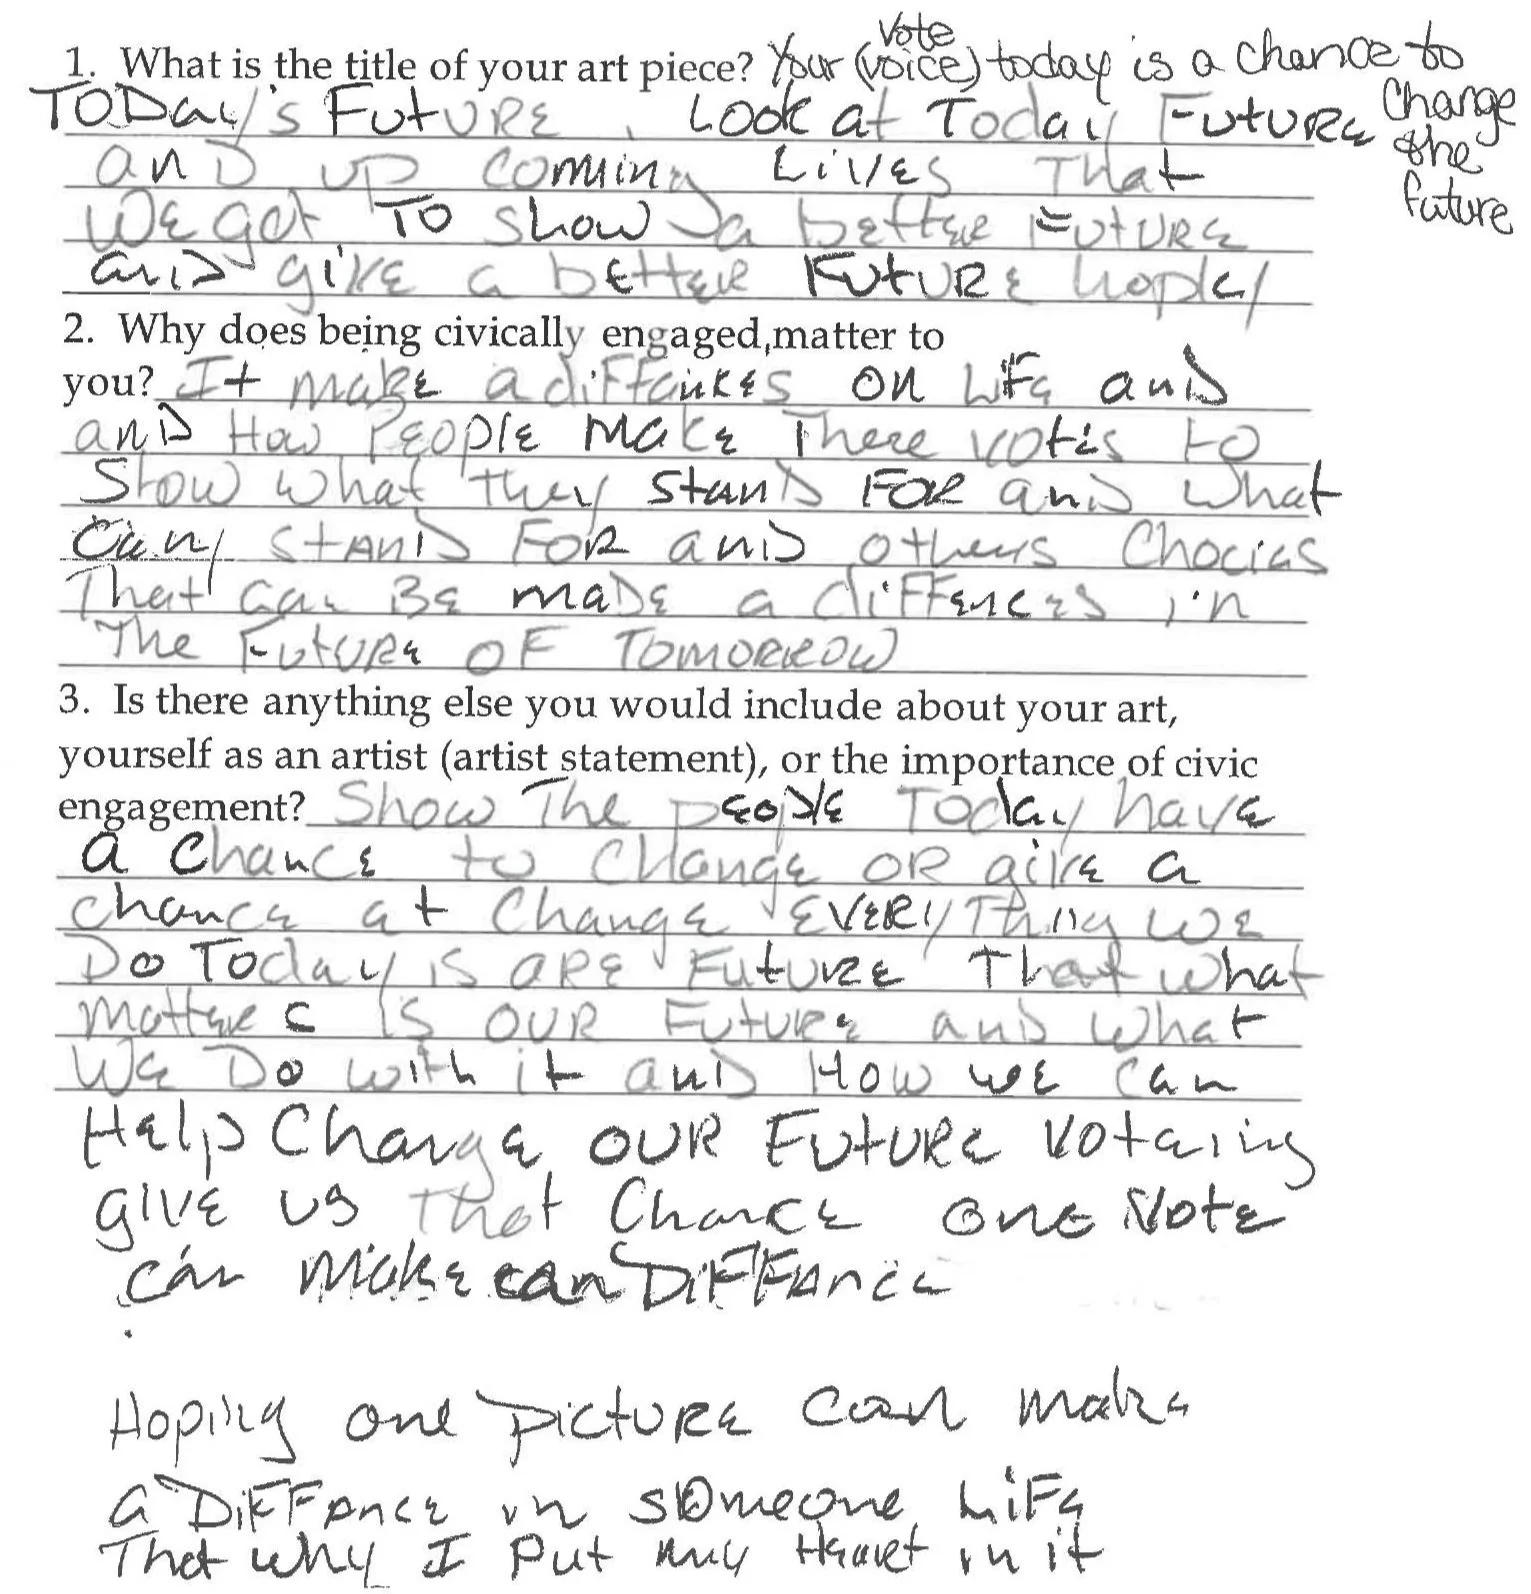 1. What is the title of your art piece? Your (voice) Vote today is a chance to
change
the
future
TODay's FutURE, Look at Today FutuRE
anD up coming LivEs That
WE got To show a bettER FutURE
anD givE a bEttER FutURE
2. Why does being civically engaged matter to
you? It makE a diFFainkEs on LiFE anD
anD How PEOplE MakE ThERE votEs to
Show what they stanD FOR anD what
stAnD FOR anD others Chocies
That can BE maDE a diFFEncEs in
The FutuRE OF TOMORROW
3. Is there anything else you would include about your art,
yourself as an artist (artist statement), or the importance of civic
engagement? Show The pEoplE Today havE
a chancE to changE OR givE a
chancE at changE EVERyThing WE
Do Today is aRE FutuRE That what
matteR is OUR FutuRE anD what
WE Do with it anD How WE can
HElp ChangE OUR FutuRE VotEing
givE us That ChancE onE VotE
can MakE can DiFFAncE
Hoping onE pictuRE can makE
a DiFFancE in someonE LiFE
That why I Put my HEaRt in it